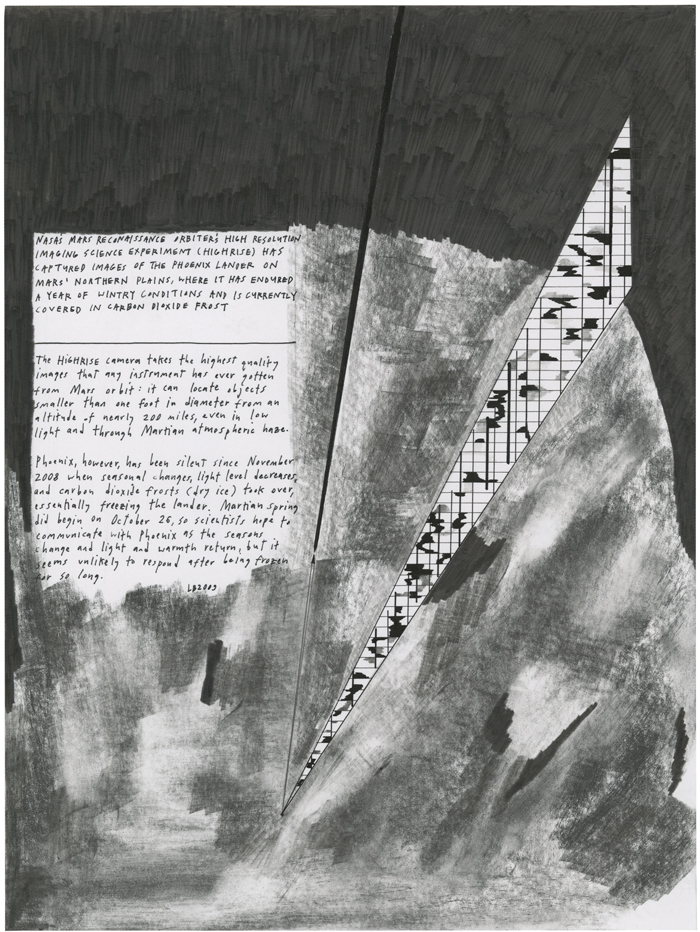 NASA'S MARS RECONAISSANCE ORBITER'S HIGH RESOLUTION
IMAGING SCIENCE EXPERIMENT (HIGHRISE) HAS
CAPTURED IMAGES OF THE PHOENIX LANDER ON
MARS' NORTHERN PLAINS, WHERE IT HAS ENDURED
A YEAR OF WINTRY CONDITIONS AND IS CURRENTLY
COVERED IN CARBON DIOXIDE FROST
The HIGHRISE camera takes the highest quality
images that any instrument has ever gotten
from Mars orbit: it can locate objects
smaller than one foot in diameter from an
altitude of nearly 200 miles, even in low
light and through Martian atmospheric haze.
Phoenix, however, has been silent since November
2008 when seasonal changes, light level decreases,
and carbon dioxide frosts (dry ice) took over,
essentially freezing the lander. Martian spring
did begin on October 26, so scientists hope to
communicate with Phoenix as the seasons
change and light and warmth return, but it
seems unlikely to respond after being frozen
for so long.
LB2009